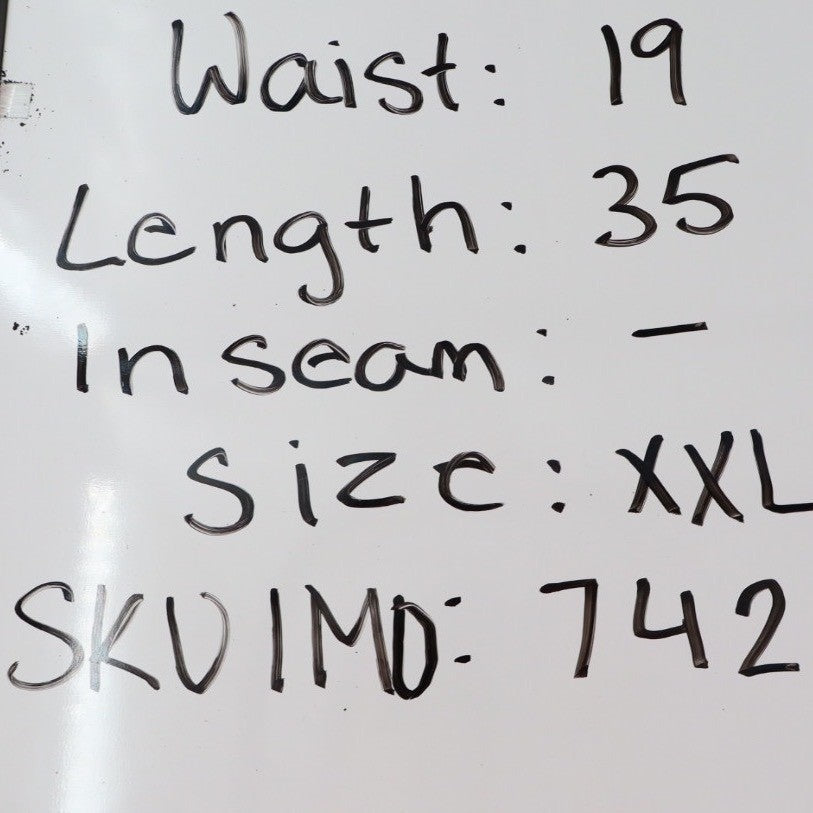 Waist: 19
Length: 35
Inseam: -
Size: XXL
SKU IMD: 742